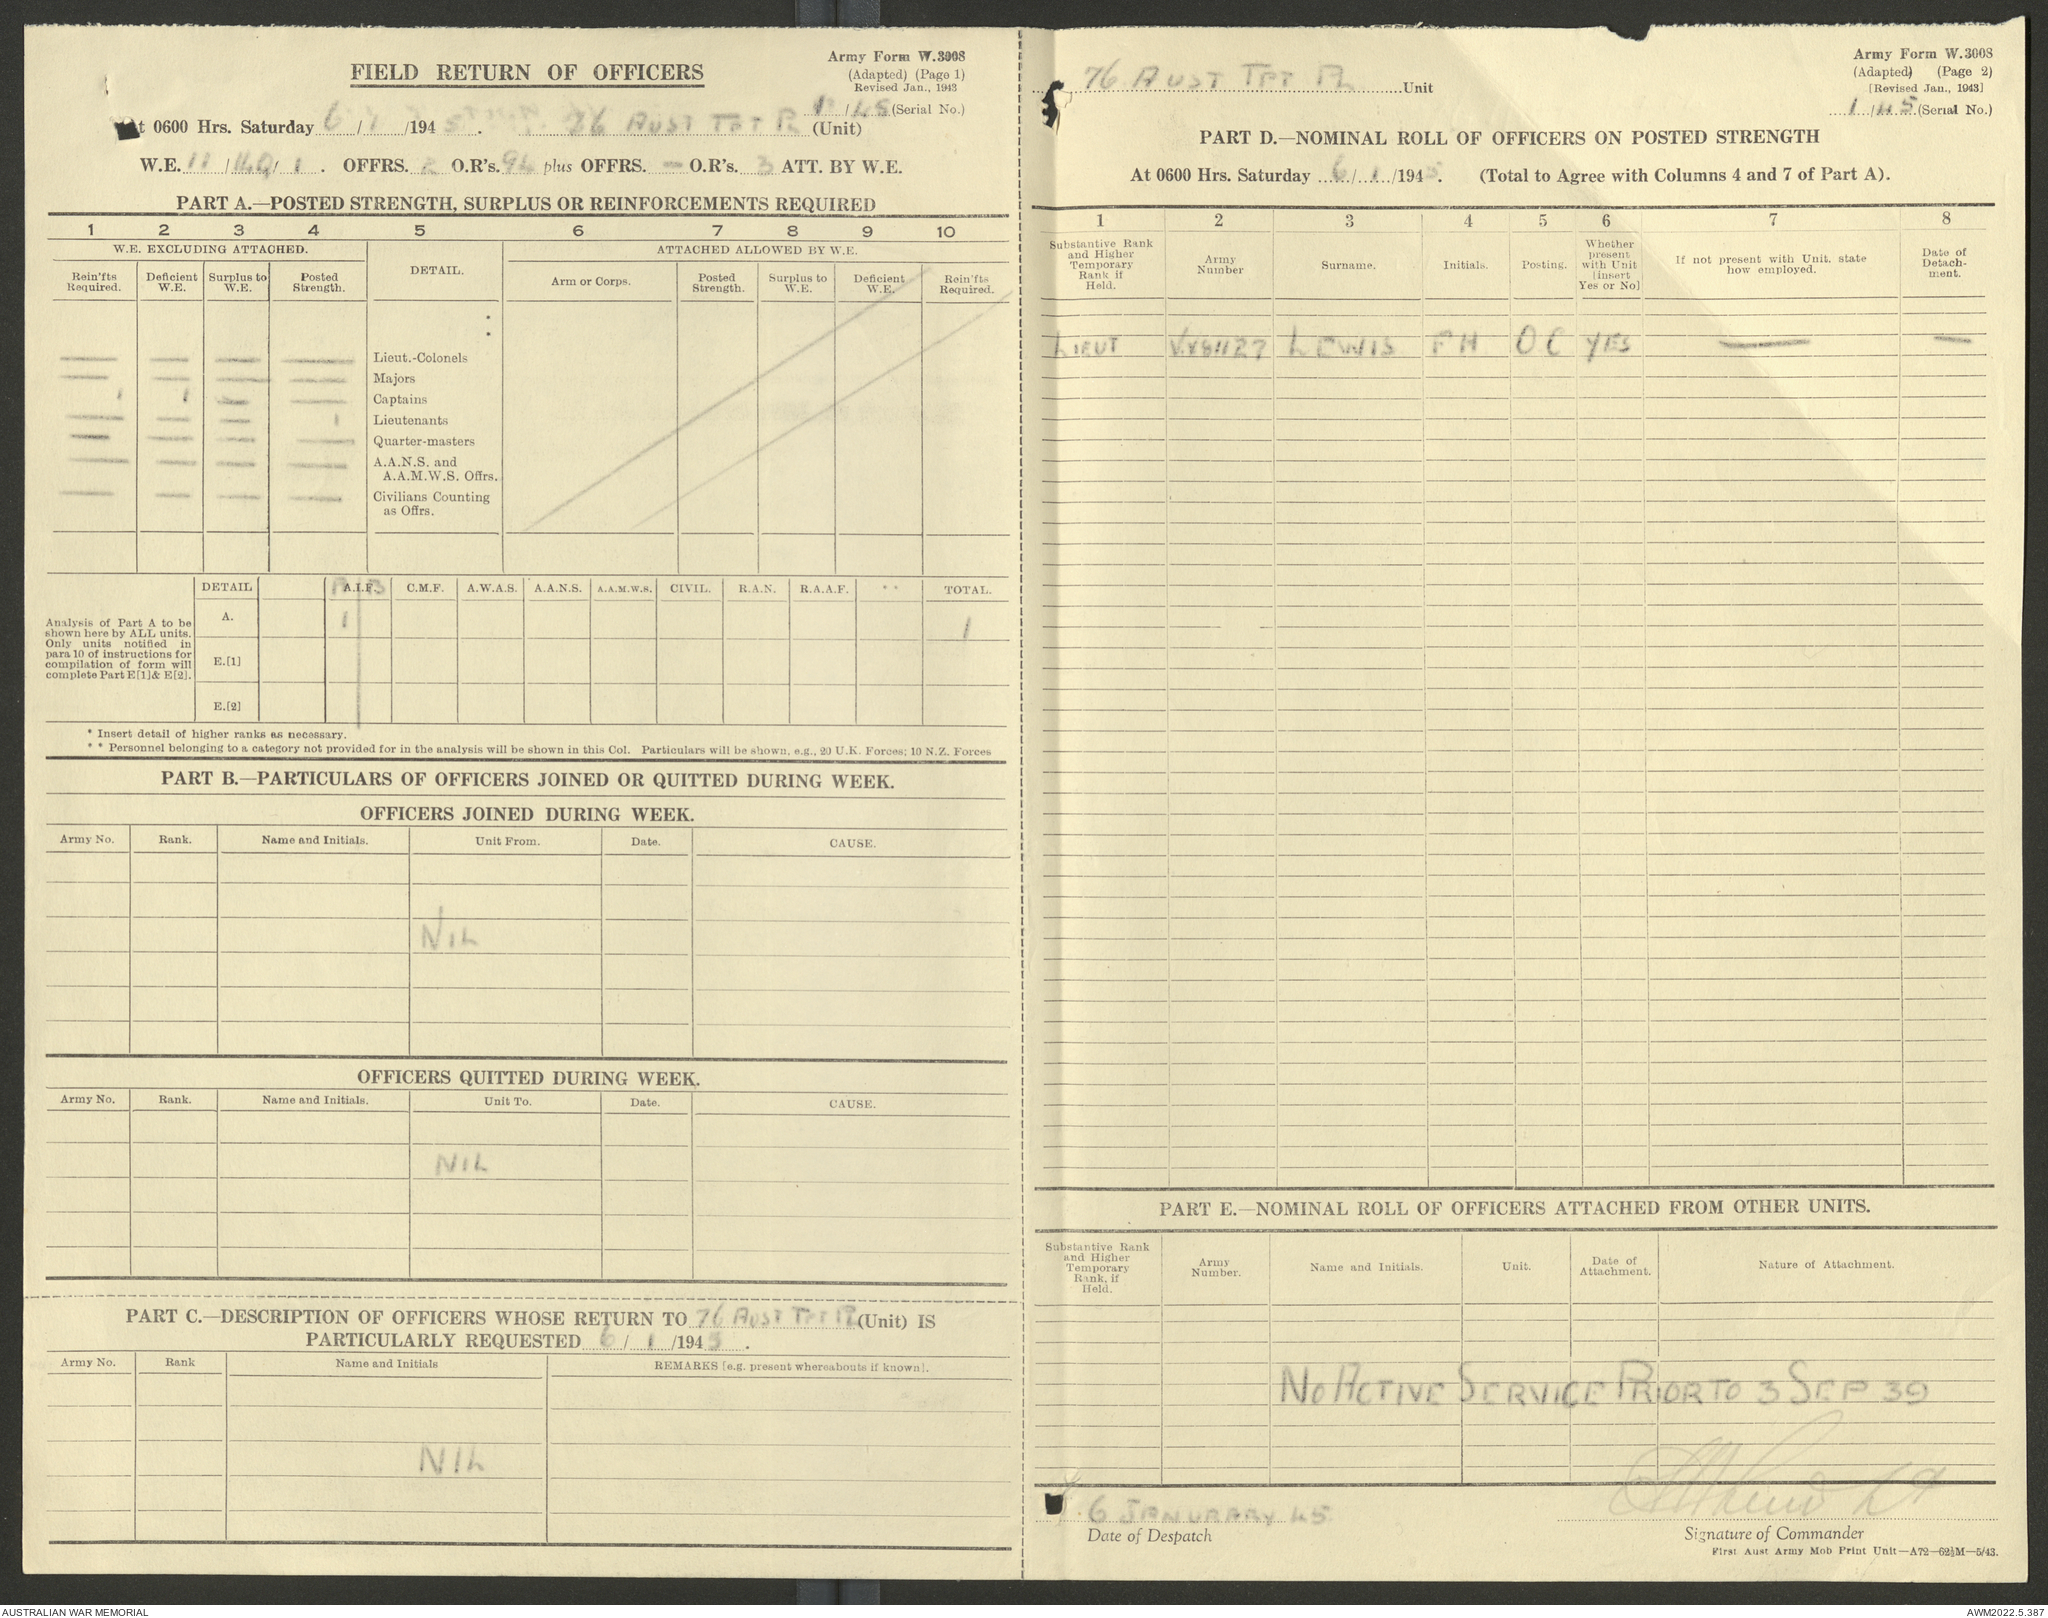 Army Form W.3008
FIELD RETURN OF OFFICERS
(Adapted) (Page 1)
Revised Jan., 1943
1/45 (Serial No.)
At 0600 Hrs. Saturday 6/1/1945. 76 AUST TPT PL (Unit)
W.E. 11/ /1. OFFRS. 2 O.R's. 94 plus OFFRS. — O.R's. 3 ATT. BY W.E.
PART A.—POSTED STRENGTH, SURPLUS OR REINFORCEMENTS REQUIRED
1 2 3 4 5 6 7 8 9 10
W.E. EXCLUDING ATTACHED. DETAIL. ATTACHED ALLOWED BY W.E.
Rein'fts Required. Deficient W.E. Surplus to W.E. Posted Strength. Arm or Corps. Posted Strength. Surplus to W.E. Deficient W.E. Rein'fts Required.
— — — — Lieut.-Colonels
— — — — Majors
1 1 — — Captains
— — — 1 Lieutenants
— — — — Quarter-masters
— — — — A.A.N.S. and
A.A.M.W.S. Offrs.
— — — — Civilians Counting
as Offrs.
DETAIL A.I.F. C.M.F. A.W.A.S. A.A.N.S. A.A.M.W.S. CIVIL. R.A.N. R.A.A.F. ** TOTAL.
A B
A. 1 1
Analysis of Part A to be
shown here by ALL units.
Only units notified in
para 10 of instructions for
compilation of form will
complete Part E[1]& E[2].
E.[1]
E.[2]
* Insert detail of higher ranks as necessary.
* * Personnel belonging to a category not provided for in the analysis will be shown in this Col. Particulars will be shown, e.g., 20 U.K. Forces; 10 N.Z. Forces
PART B.—PARTICULARS OF OFFICERS JOINED OR QUITTED DURING WEEK.
OFFICERS JOINED DURING WEEK.
Army No. Rank. Name and Initials. Unit From. Date. CAUSE.
NIL
OFFICERS QUITTED DURING WEEK.
Army No. Rank. Name and Initials. Unit To. Date. CAUSE.
NIL
PART C.—DESCRIPTION OF OFFICERS WHOSE RETURN TO 76 AUST TPT PL (Unit) IS
PARTICULARLY REQUESTED 6/1/1945.
Army No. Rank Name and Initials REMARKS [e.g. present whereabouts if known].
NIL
Army Form W.3008
76 AUST TPT PL Unit
(Adapted) (Page 2)
[Revised Jan., 1943]
1/45 (Serial No.)
PART D.—NOMINAL ROLL OF OFFICERS ON POSTED STRENGTH
At 0600 Hrs. Saturday 6/1/1945. (Total to Agree with Columns 4 and 7 of Part A).
1 2 3 4 5 6 7 8
Substantive Rank and Higher Temporary Rank if Held. Army Number Surname. Initials. Posting. Whether present with Unit [insert Yes or No] If not present with Unit, state how employed. Date of Detach-ment.
LIEUT VX81127 LEWIS FH OC YES — —
PART E.—NOMINAL ROLL OF OFFICERS ATTACHED FROM OTHER UNITS.
Substantive Rank and Higher Temporary Rank, if Held. Army Number. Name and Initials. Unit. Date of Attachment. Nature of Attachment.
NO ACTIVE SERVICE PRIOR TO 3 SEP 39
6 JANURARY 45
Date of Despatch
Signature of Commander
First Aust Army Mob Print Unit—A72—62½M—5/43.
AUSTRALIAN WAR MEMORIAL
AWM2022.5.387